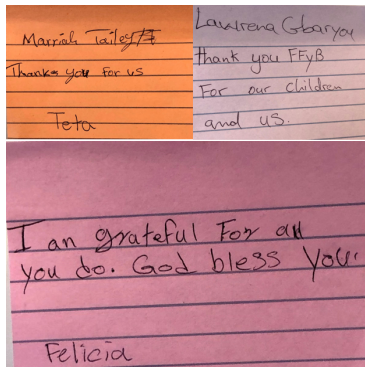 Marriah Tailey
Thanks you for us
Teta
Lawrena Gbaryou
thank you FFyB
For our children
and us.
I an grateful For all
you do. God bless you.
Felicia